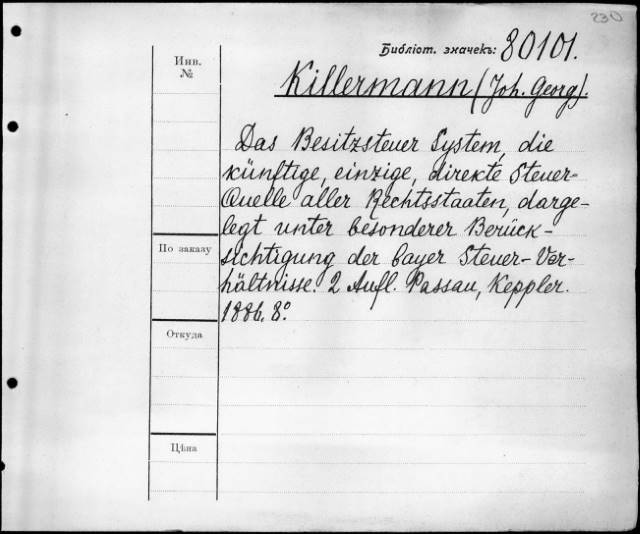 230
Библіот. значекъ: 80101.
Инв.
№
Killermann (Joh. Georg).
Das Besitzsteuer System, die
künftige, einzige, direkte Steuer-
Quelle aller Rechtsstaaten, darge-
legt unter besonderer Berück-
sichtigung der bayer Steuer-Ver-
hältnisse. 2 Aufl. Passau, Keppler.
1886. 8°.
По заказу
Откуда
Цѣна